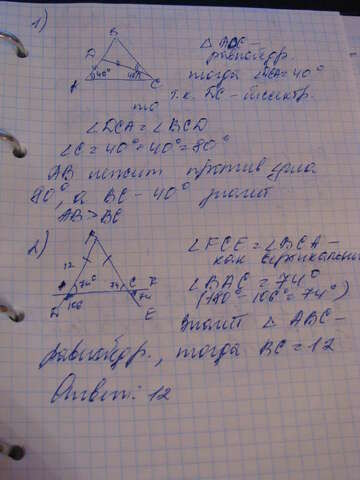 1)
B
D
A 40° 40° C
△ ADC –
равнобедр.
тогда ∠DCA = 40°
т.к. DC – биссектр.
то
∠DCA = ∠BCD
∠C = 40° + 40° = 80°
AB лежит против угла
80°, а BC – 40° значит
AB > BC
2)
B
12
74° 74 C F
106 74
E
∠FCE = ∠BCA –
как вертикальн
∠BAC = 74°
(180° – 106° = 74°)
Значит △ ABC –
равнобедр., тогда BC = 12
Ответ: 12